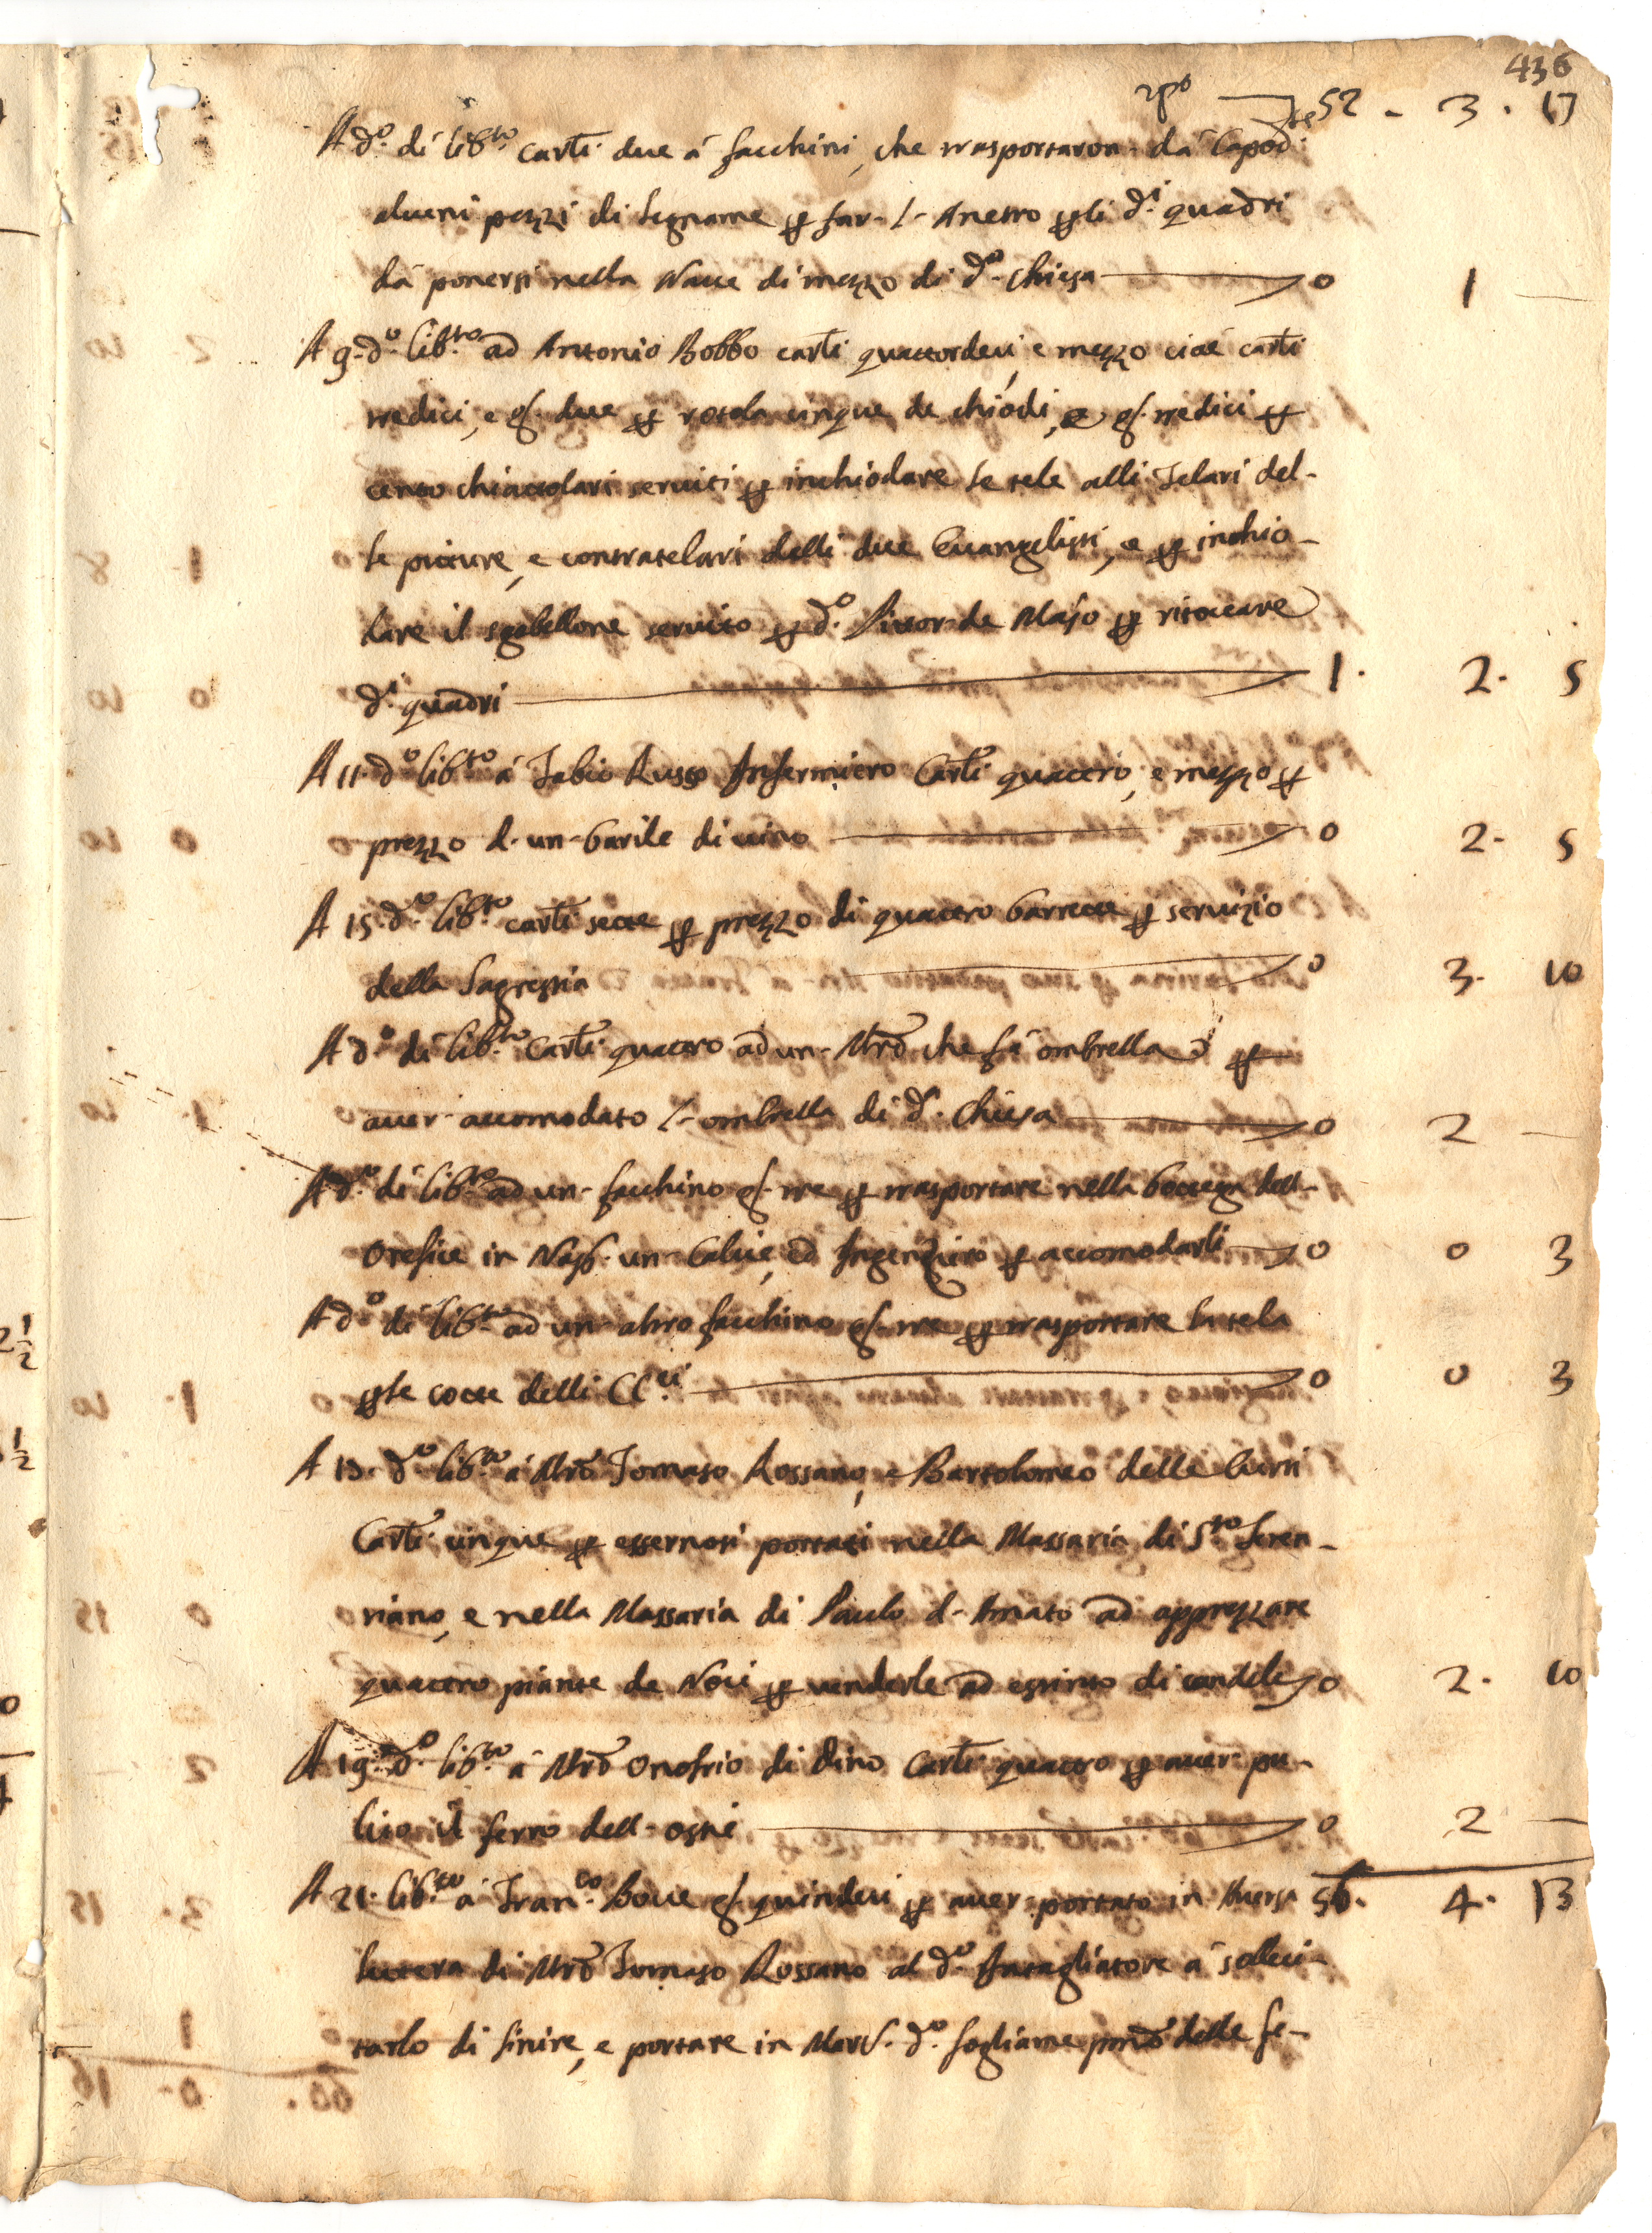 436
rpo 52 - 3 . 17
A do. dí libto carti due á facchini, che trasportaron- dá Capodte
alcuni pezzi di legname p far- l- Anetto p gli di quadri
dá ponersi nella Naue di mezzo di da chiesa 0 1 —
A 9. do. libto ad Antonio Bobbo carti quattordeci, e mezzo cioé carti
tredici, e g. due p rotola cinque de chiódi, e g. tredici p
cento chiaccolari seruiti p inchiodare le tele alli Telari del-
le picture, e contratelari delli due Euangelisti, e p inchio-
dare il scabellone seruito p do. Pittor de Majo p ritoccare
di quadri 1. 2. 5
A 11. do libto á Fabio Russo Infermiero Carti quattro, e mezzo p
prezzo d. un- barile di uino 0 2- 5
A 15. do. libto carti sette p prezzo di quattro barrette p seruizio
della Sagrestia 0 3. 10
A do dí libto Carti quattro ad un- Mro che fá ombrella p
auer- accomodato l- ombrella di da. Chiesa 0 2 —
A do. dí libto ad un- facchino g. tre p trasportare nella bottega dell-
Orefice in Nap. un- Calice, ed Ingenziero p accomodarli 0 0 3
A do dí libto ad un- altro facchino g. tre p trasportare la tela
p le cotte delli CCci 0 0 3
A 17. do libto á Mro Tomaso Rossano, e Bartolomeo delle Curti
Carti cinque p essernosi portati nella Massaria di Sto Seren-
niano, e nella Massaria di Paulo d- Amato ad apprezzare
quattro piante de Noci p uenderle ad estinto di candele 0 2. 10
A 19. do. libto á Mro Onofrio di Dino Carti quattro p auer- pu-
lito il ferro dell- ostie 0 2 —
A 21. libto á Franco. Boue g. quindeci p auer- portato in Auersa 56. 4. 13
lettera di Mro Tomaso Rossano al do. Intagliatore á solleci-
tarlo di finire, e portare in Mars. do. fogliame pmo delle fe-